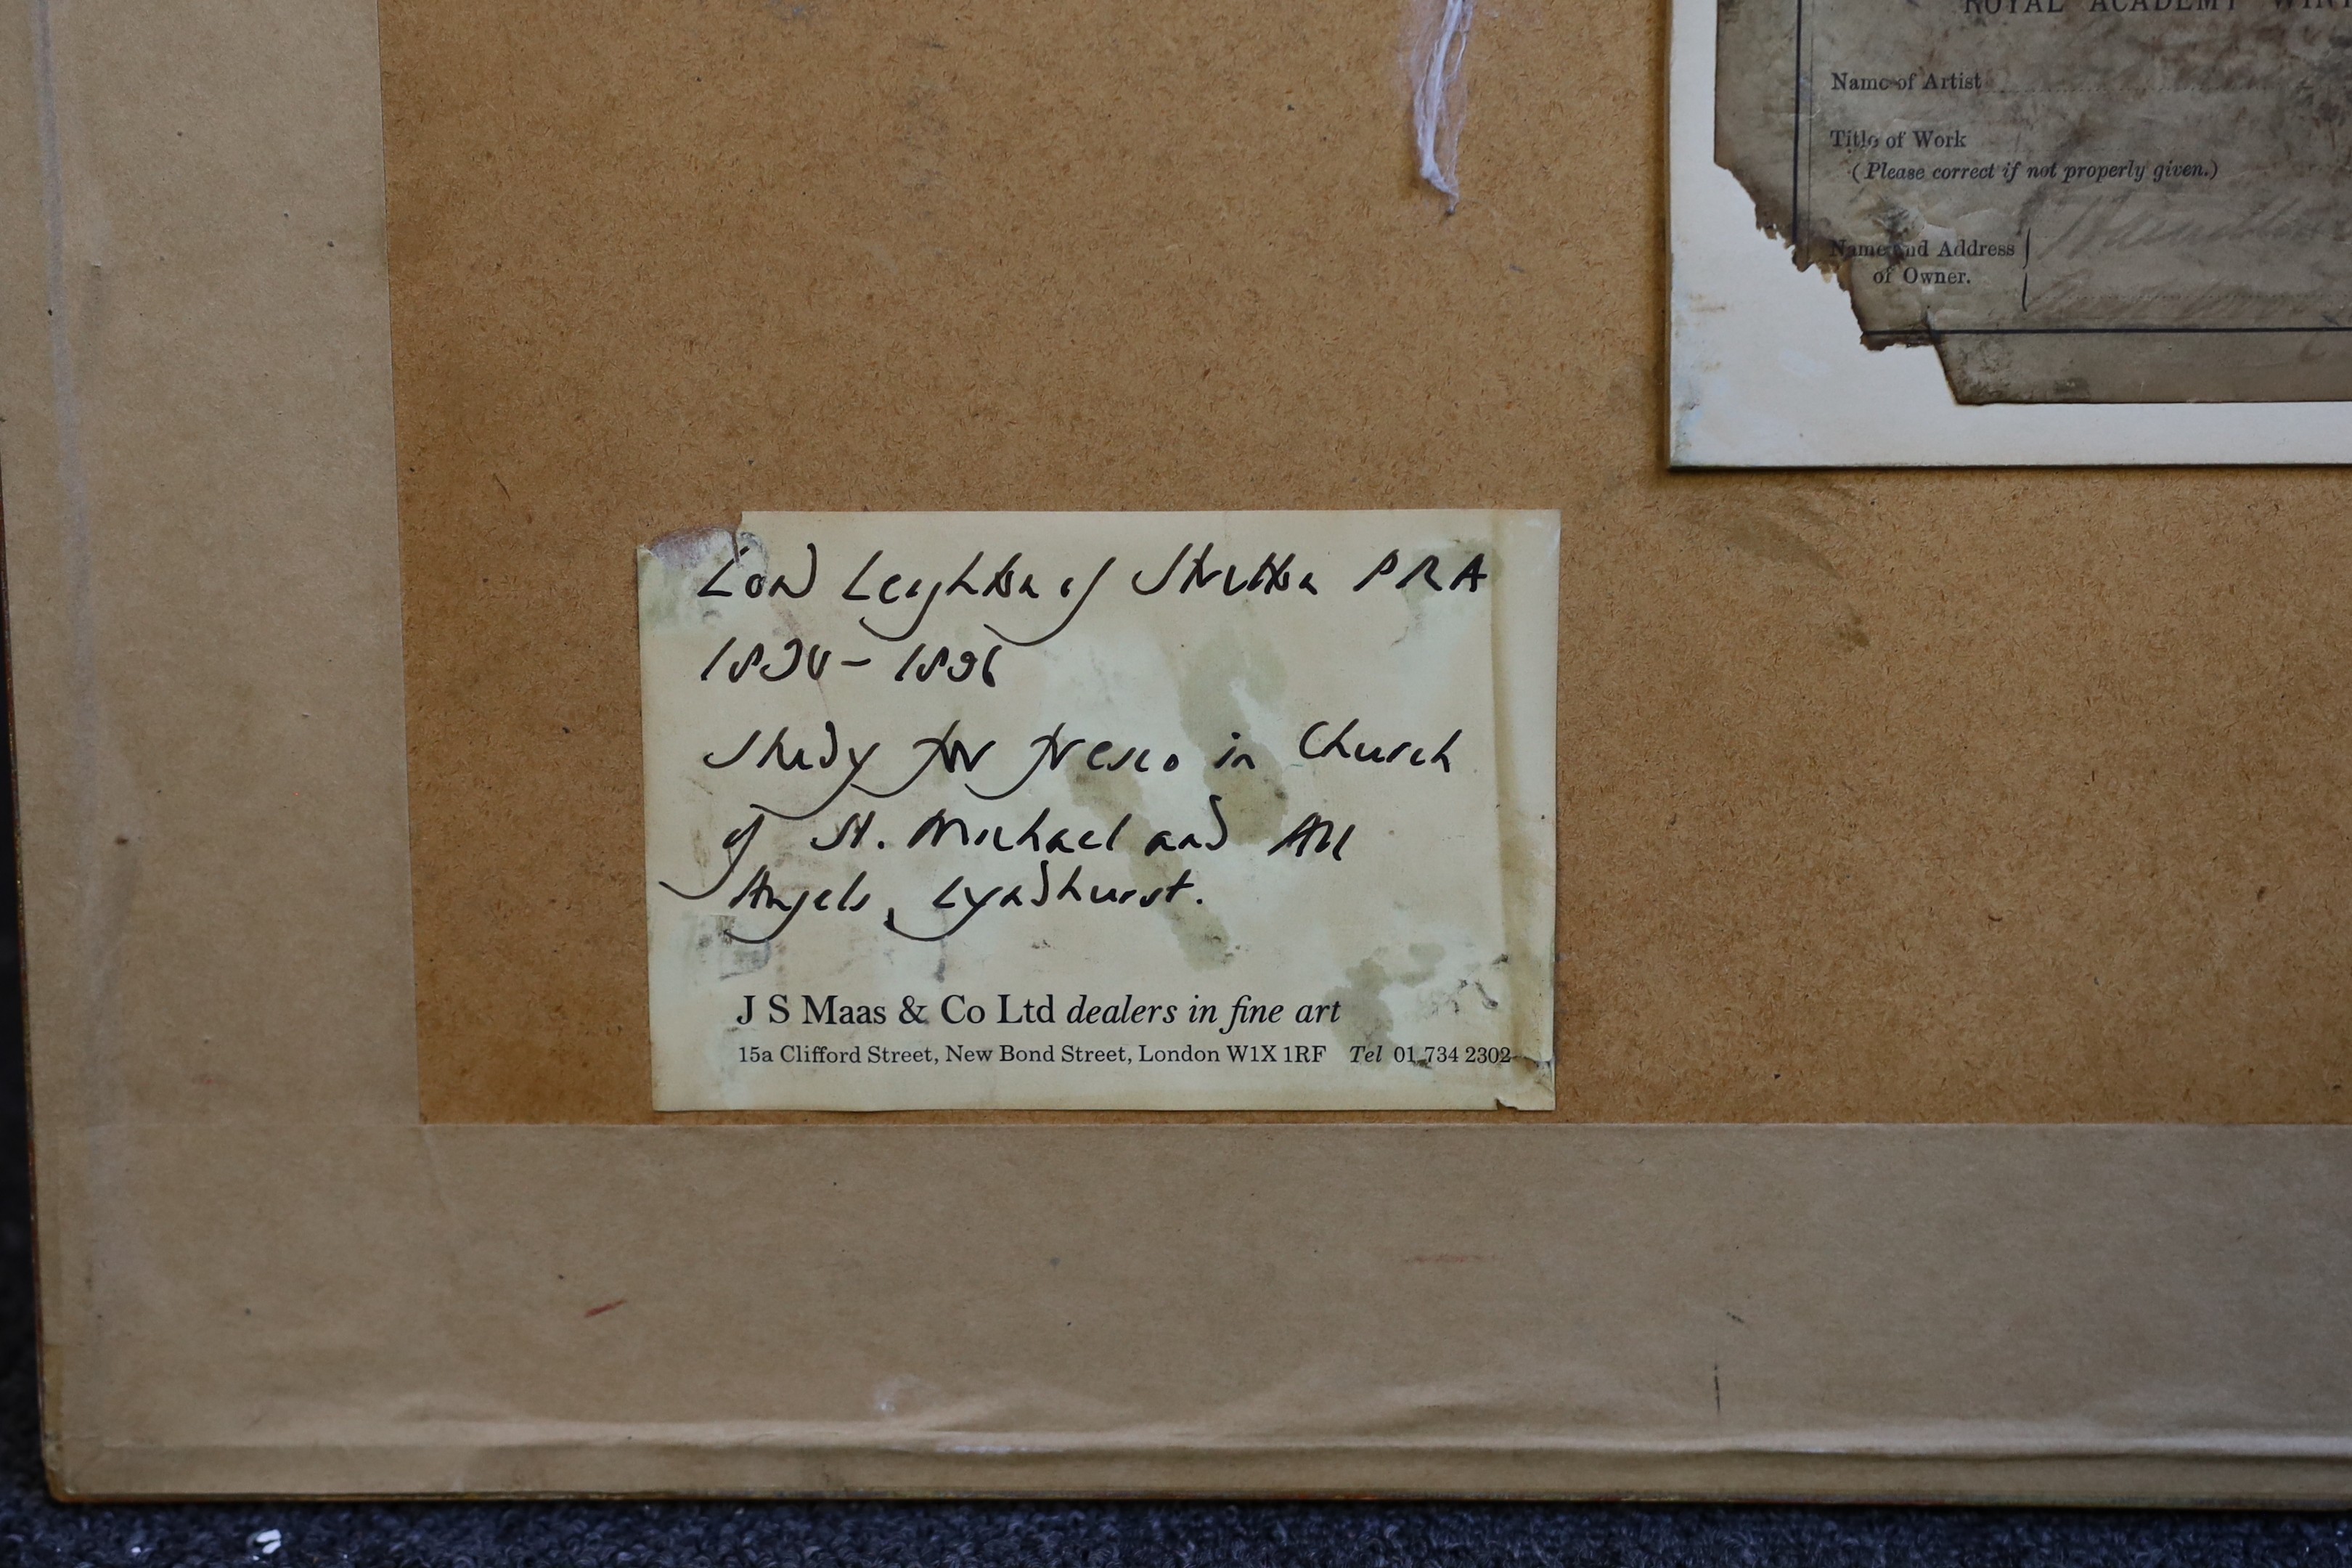 ROYAL ACADEMY
Name of Artist
Title of Work
(Please correct if not properly given.)
Name and Address
of Owner.
Lord Leighton of Stretton PRA
1830 - 1896
Study for fresco in Church
of St. Michael and All
Angels, Lyndhurst.
J S Maas & Co Ltd dealers in fine art
15a Clifford Street, New Bond Street, London W1X 1RF Tel 01 734 2302